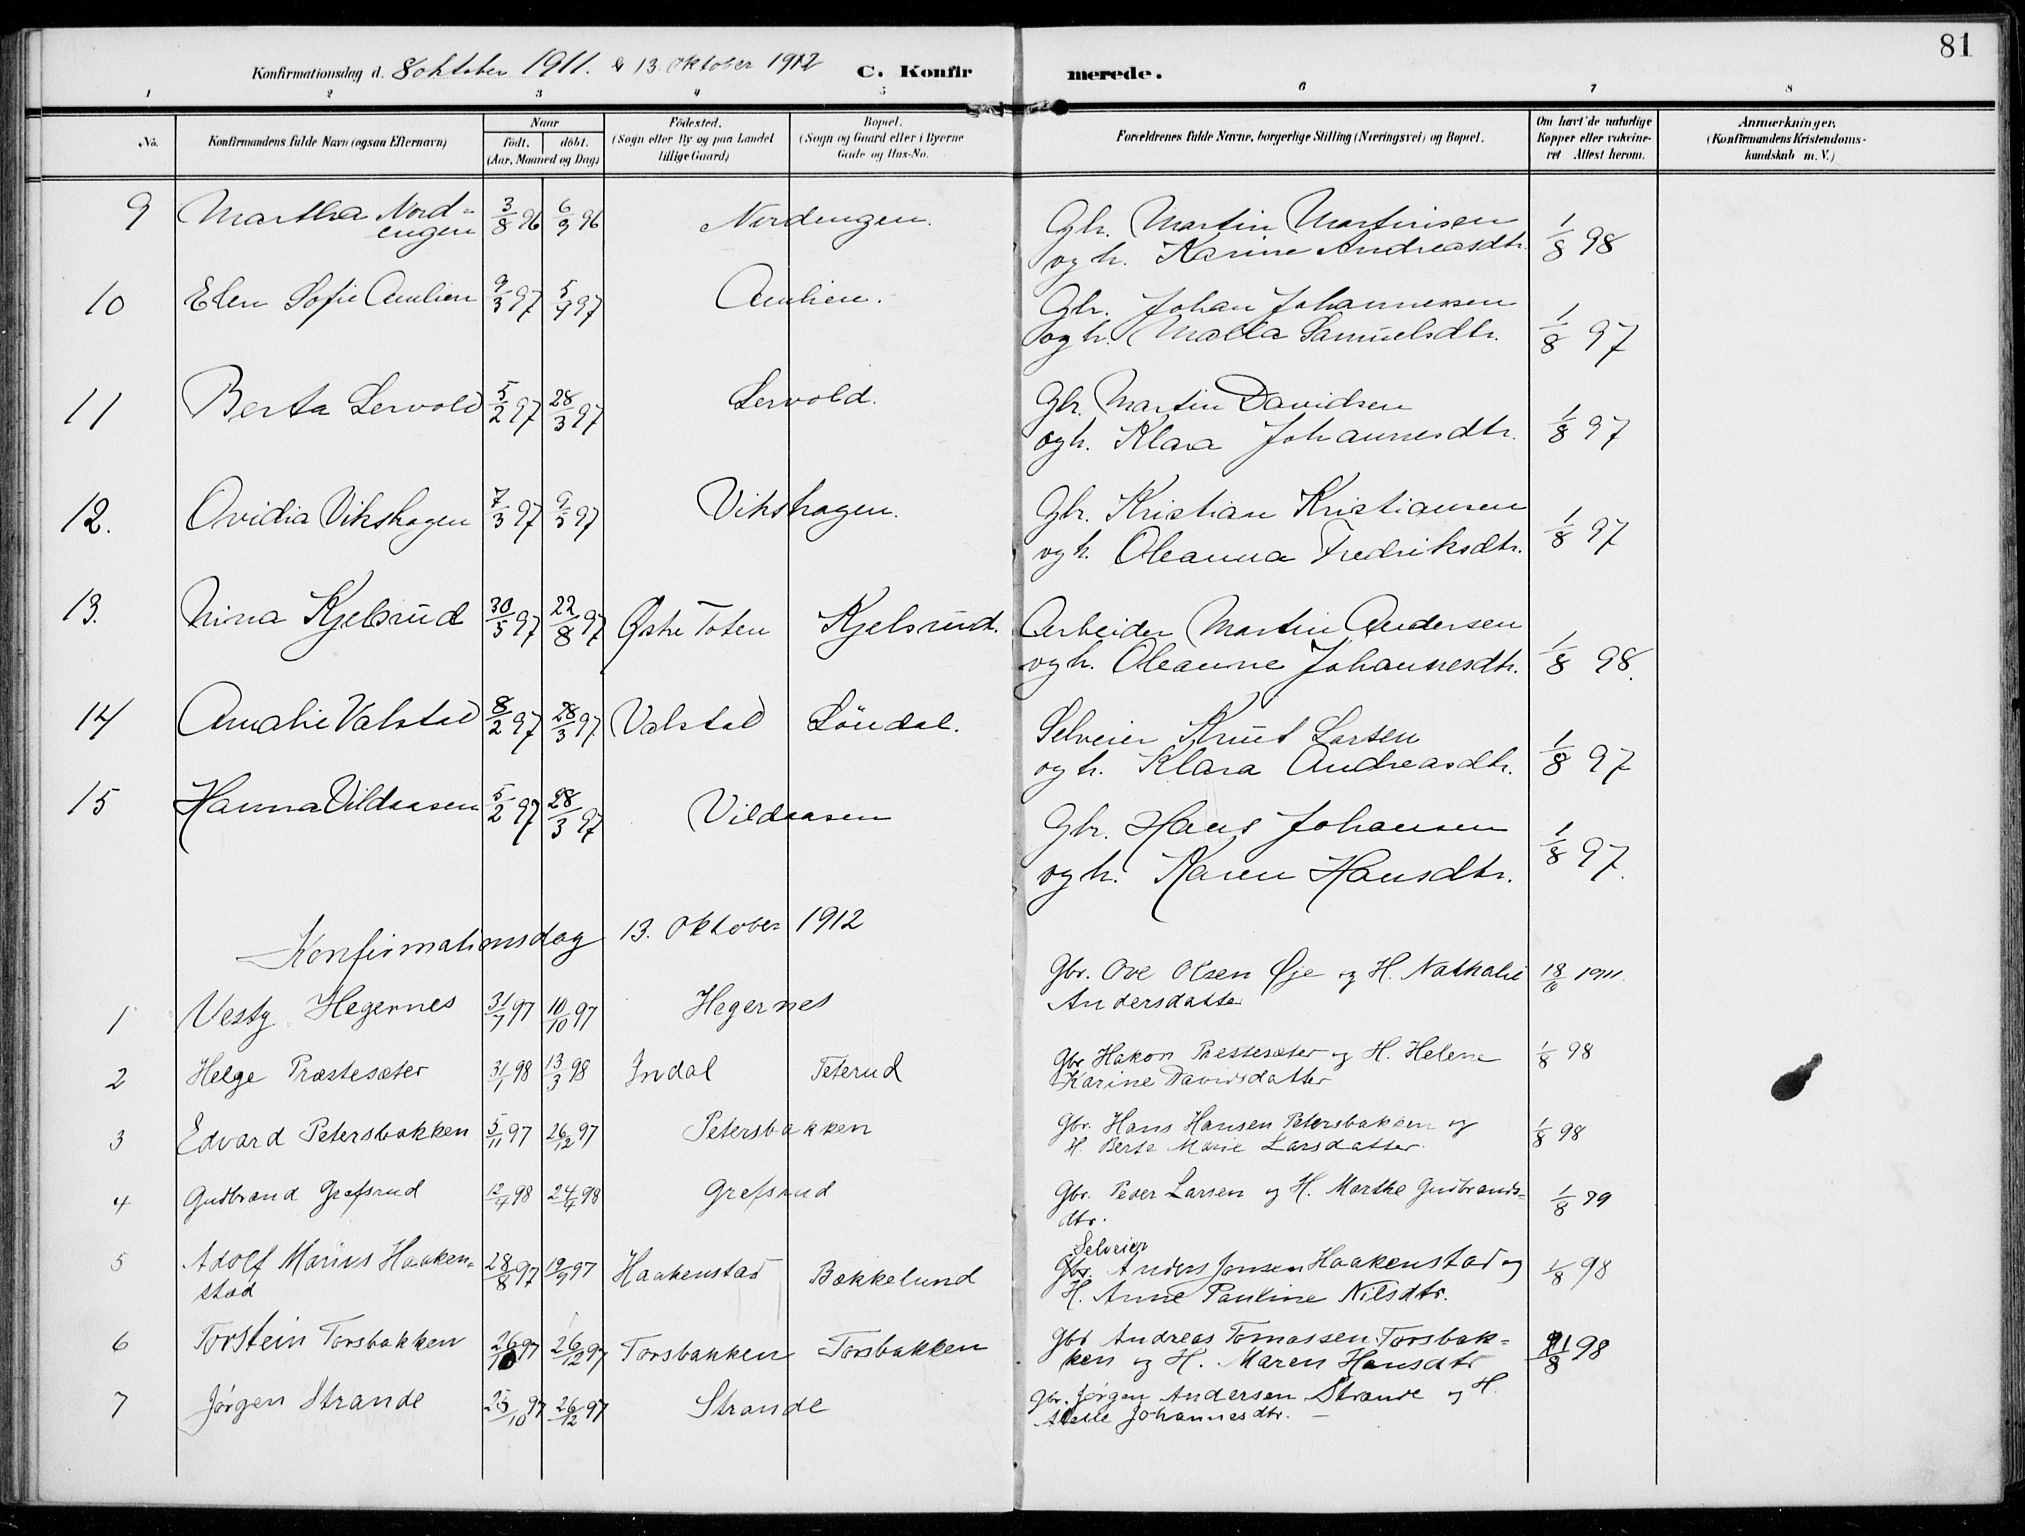 81
Konfirmationsdag d. 8 oktober 1911. & 13. oktober 1912 C. Konfirmerede.
1 2 3 4 5 6 7 8
No.
Konfirmandens fulde Navn (ogsaa Efternavn)
Naar
født. døbt.
(Aar, Maaned og Dag)
Fødested.
(Sogn eller By og paa Landet
tillige Gaard)
Bopæl.
(Sogn og Gaard eller i Byerne
Gade og Hus-No.
Forældrenes fulde Navne, borgerlige Stilling (Næringsvei) og Bopæl.
Om havt de naturlige
Kopper eller vakcine-
ret Attest herom.
Anmærkninger.
(Konfirmandens Kristendoms-
kundskab m. V.)
9 Martha Nord- 3/8 96 6/9 96 Nordengen. Gbr. Martin Martinsen
engen og h. Karine Andreasdtr. 1/8 98
10 Elen Sofie Aulien 9/3 97 5/9 97 Aulien. Gbr. Johan Johannessen
og h. Malla Samuelsdtr. 1/8 97
11 Berta Lervold 5/2 97 28/3 97 Lervold. Gbr. Martin Davidsen
og h. Klara Johannesdtr. 1/8 97
12. Ovidia Vikshagen 7/3 97 9/5 97 Vikshagen. Gbr. Kristian Kristiansen
og h. Oleanna Fredriksdtr. 1/8 97
13. Nina Kjelsrud 30/5 97 22/8 97 Østre Toten Kjelsrud. Arbeider Martin Andersen
og h. Oleanne Johannesdtr. 1/8 98.
14 Amalie Valstad 8/2 97 28/3 97 Valstad Løndal. Selveier Knut Larsen
og h. Klara Andreasdtr. 1/8 97
15 Hanna Vildaasen 5/2 97 28/3 97 Vildaasen Gbr. Hans Johansen
og h. Karen Hansdtr. 1/8 97.
Konfirmationsdag 13. Oktober 1912
1 Vesty Hegernes 31/7 97 10/10 97 Hegernes Gbr. Ove Olsen Øje og H. Nathalie 18/6 1911.
Andersdatter
2 Helge Præstesæter 31/1 98 13/3 98 Indal Teterud Gbr. Hakon Præstesæter og H. Helene 1/8 98
Karine Davidsdatter
3 Edvard Petersbakken 5/11 97 26/12 97 Petersbakken Gbr. Hans Hansen Petersbakken og 1/8 98
H. Berte Marie Larsdatter.
4 Gudbrand Grefsrud 12/4 98 24/4 98 Grefsrud Gbr. Peder Larsen og H. Marthe Gudbrands- 1/8 99
dtr.
5 Adolf Marius Haaken- 28/8 97 19/9 97 Haakenstad Bækkelund Selveier
stad Gbr. Anders Jonsen Haakenstad og 1/8 98
H. Anne Pauline Nilsdtr.
6 Torstein Torsbakken 26/10 97 26/12 97 Torsbakken Torsbakken Gbr Andreas Tomassen Torsbak- 1/8 98
ken og H. Maren Hansdtr
7 Jørgen Strande 25/10 97 26/12 97 Strande Gbr. Jørgen Andersen Strande og H.
Johannesdtr. —